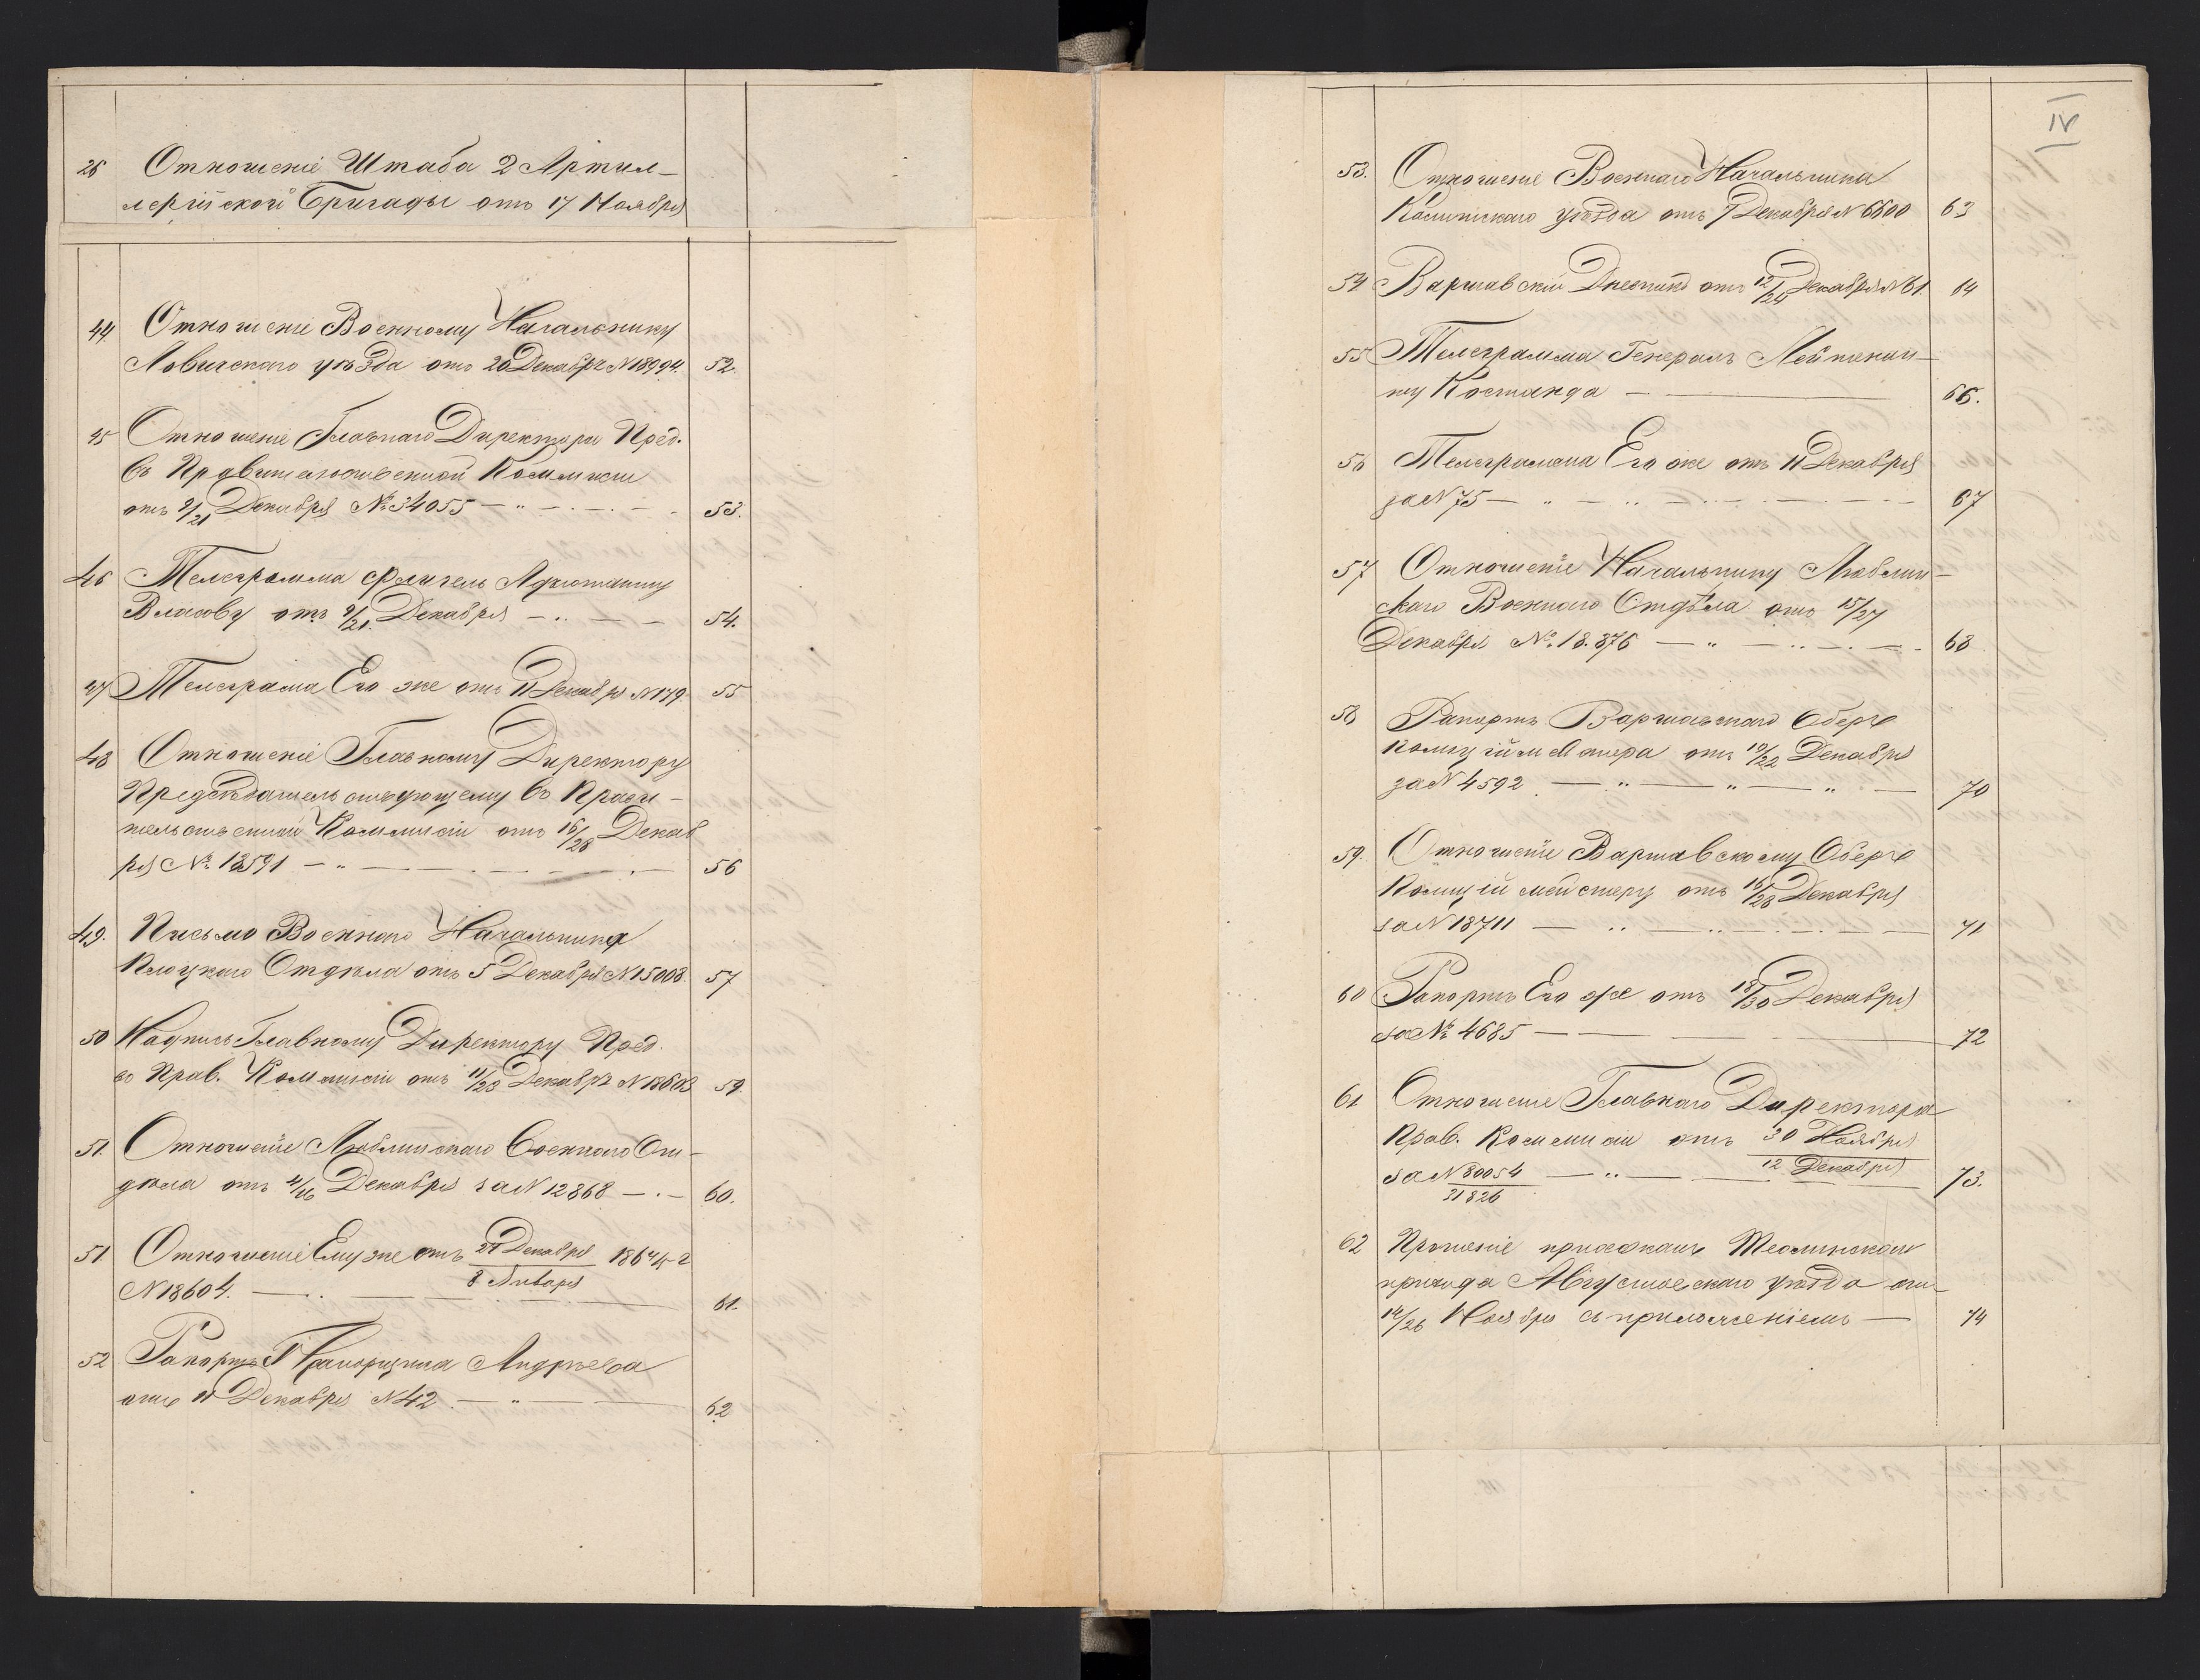 26 Отношеніе Штаба 2 Артил-
лерійской Бригады отъ 17 Ноября
44 Отношеніе Военному Начальнику
Ловичскаго уѣзда отъ 20 Декабря N 18994. 52.
45 Отношеніе Главнаго Директора Пред.
въ Правительственной Коммисіи
отъ 9/21 Декабря № 34055 — „ — . — . — 53.
46 Телеграмма Флигель Адъютанту
Власову отъ 9/21. Декабря — .. — — 54.
47 Телеграма Его же отъ 11 Декабря N 179. 55
48 Отношеніе Главному Директору
Предсѣдательствующему въ Прави-
тельственной Коммисіи отъ 16/28 Декаб
ря № 18591 — „ — 56
49. Письмо Военнаго Начальника
Плоцкаго Отдѣла отъ 5 Декабря N 15003. 57
50 Надпись Главному Директору Пред.
въ Прав. Коммисіи отъ 11/23 Декабря N 18603 59
51. Отношеніе Люблинскаго Военнаго От-
дѣла отъ 4/16 Декабря за N 12868 — . — 60.
51 Отношеніе Ему же отъ 27 Декабря / 8 Января 1864/5 г
N 18604. — 61.
52 Рапортъ Прапорщика Андреева
отъ 11 Декабря N 42 — „ — 62
IV
53. Отношеніе Военнаго Начальника
уѣзда отъ 7 Декабря N 6600 63
54 Варшавскій Дневникъ отъ 12/24 Декабря N 61. 64
55 Телеграмма Генералъ Лейтенан-
ту Костанда — 66.
56 Телеграмма Его же отъ 11 Декабря
за N 75 — „ — 67
57 Отношеніе Начальнику Люблин-
скаго Военнаго Отдѣла отъ 15/27
Декабря №. 18.876 — „ — 68
58 Рапортъ Варшавскаго Оберъ
Полицiймейстера отъ 10/22 Декабря
за N 4592 — „ — „ — „ — 70
59. Отношеніе Варшавскому Оберъ
Полиціймейстеру отъ 16/28 Декабря
за N 18711 — 71
60 Рапортъ Его же отъ 18/30 Декабря
за № 4685 — 72
61 Отношеніе Главнаго Директора
Прав. Коммисіи отъ 30 Ноября
за N 30054 / 31826 — „ — 12 Декабря 73.
62 Прошеніе прихожанъ Теолинскаго
прихода Августовскаго уѣзда отъ
14/26 Ноября съ приложеніемъ — 74